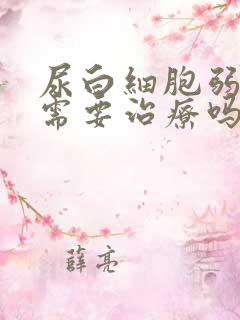 尿白細胞弱
需要治療嗎
薛亮